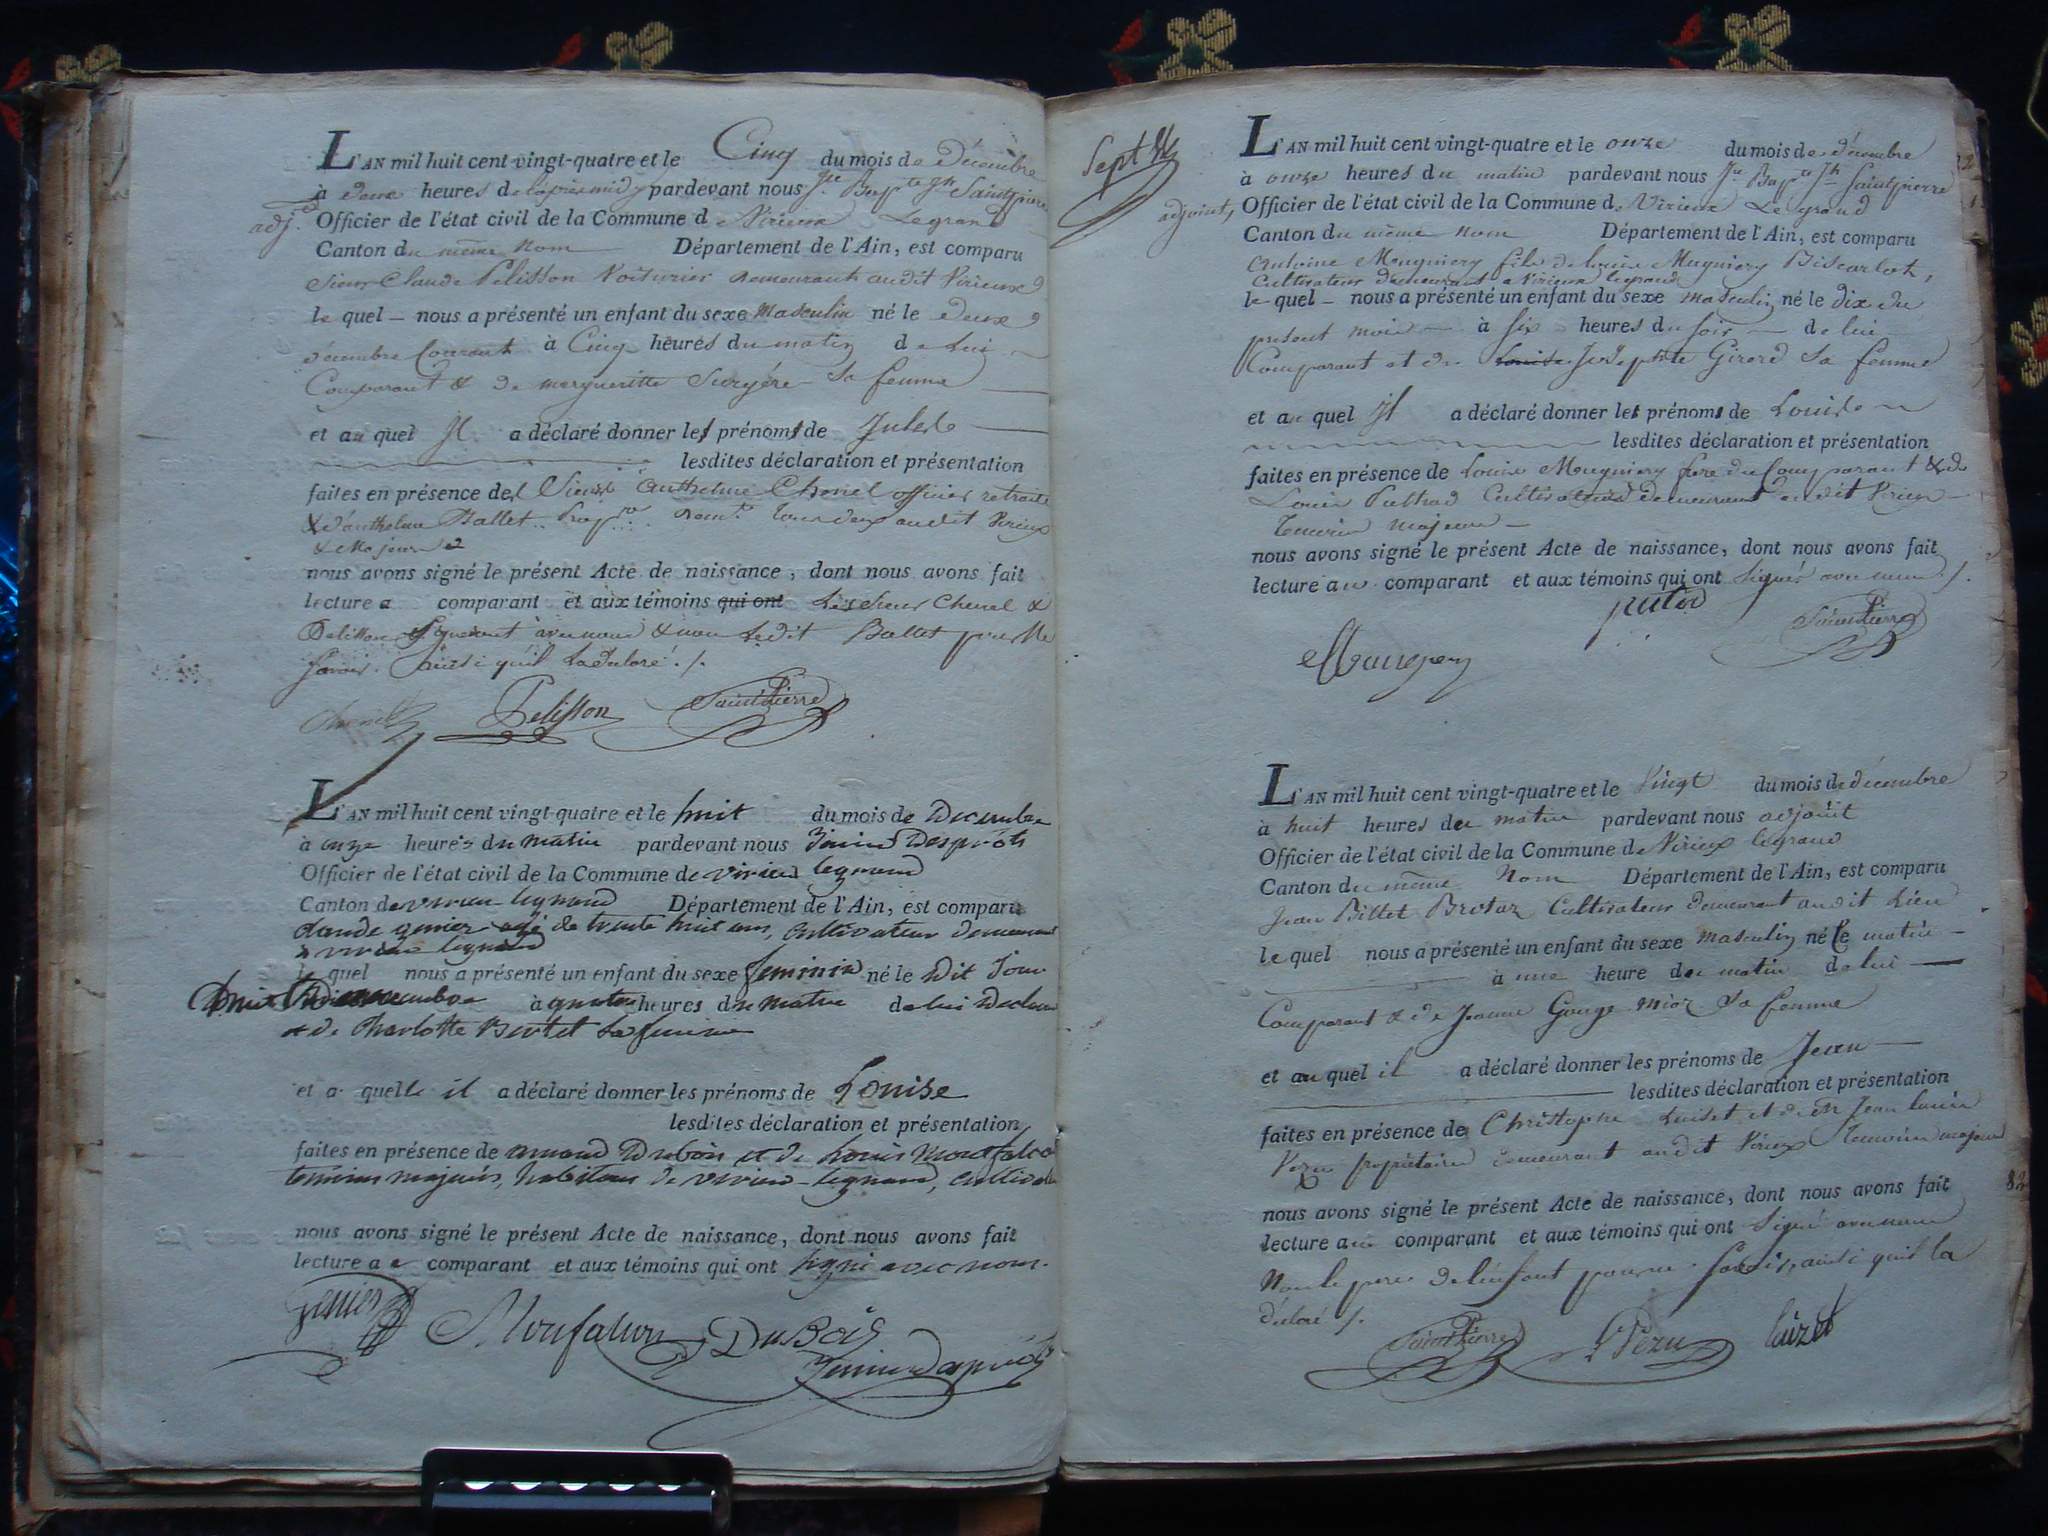 L'AN mil huit cent vingt-quatre et le Cinq du mois de Décembre
à deux heures de l'après midy pardevant nous Jn Bapte Jh Saintpierre
adj.t Officier de l'état civil de la Commune de Virieux Legrand
Canton du même nom Département de l'Ain, est comparu
Sieur Claude Pelisson Voiturier demeurant audit Virieux
le quel nous a présenté un enfant du sexe Masculin né le deux
décembre Courant à Cinq heures du matin de Lui
Comparant & de margueritte sa femme
et au quel Il a déclaré donner les prénoms de Jules
lesdites déclaration et présentation
faites en présence de Sieur Anthelme Chenel officier retraité
& d'anthelme Ballet tous deux audit Virieux
& Majeurs
nous avons signé le présent Acte de naissance, dont nous avons fait
lecture a comparant et aux témoins qui ont Les sieur Chenel &
Pelisson avec nous & non Ledit Ballet pour Ne
Savoir. ainsi qu'il La déclaré ./.
Chenel Pelisson SaintPierre
L'AN mil huit cent vingt-quatre et le huit du mois de Decembre
à onze heures du matin pardevant nous Despréts
Officier de l'état civil de la Commune de virieu legrand
Canton de virieu legrand Département de l'Ain, est comparu
claude genier agé de trente huit ans, cultivateur demeurant
a virieu legrand
le quel nous a présenté un enfant du sexe feminin né le dit jour
huit à quatre heures du matin de lui Declarant
et de Charlotte Bertet sa femme
et a quelle il a déclaré donner les prénoms de Louise
lesdites déclaration et présentation
faites en présence de Dubois et de Louis Montfalcon
temoins majeurs, habitans de virieu-legrand,
nous avons signé le présent Acte de naissance, dont nous avons fait
lecture au comparant et aux témoins qui ont signé avec nous.
genier Monfalcon DuBois
Sept
L'AN mil huit cent vingt-quatre et le onze du mois de décembre
à onze heures du matin pardevant nous Jn Bapte Jh Saintpierre
adjoint, Officier de l'état civil de la Commune de Virieux Legrand
Canton du même nom Département de l'Ain, est comparu
Antoine Mugniery fils de louis Mugniery Biscarlot,
Cultivateur demeurant a Virieux legrand
le quel nous a présenté un enfant du sexe masculin né le dix du
présent mois à six heures du soir de lui
Comparant et de Louise Josephte Girerd sa femme
et au quel Il a déclaré donner les prénoms de Louis
lesdites déclaration et présentation
faites en présence de Louis Mugniery pere du Comparant & de
Louis Cultivateurs demeurant audit Virieux
temoins majeurs
nous avons signé le présent Acte de naissance, dont nous avons fait
lecture au comparant et aux témoins qui ont signés avec nous ./.
SaintPierre
L'AN mil huit cent vingt-quatre et le Vingt du mois de décembre
à huit heures du matin pardevant nous adjoint
Officier de l'état civil de la Commune de Virieux legrand
Canton du même Nom Département de l'Ain, est comparu
Jean Billet Brotaz Cultivateur demeurant audit Lieu
le quel nous a présenté un enfant du sexe masculin né le matin
à une heure du matin de lui
Comparant & de Jeanne Gouge sa femme
et au quel il a déclaré donner les prénoms de Jean
lesdites déclaration et présentation
faites en présence de Christophe Luizet et de Jean louis
Pezu propriétaires demeurant audit Virieux temoins majeurs
nous avons signé le présent Acte de naissance, dont nous avons fait
lecture au comparant et aux témoins qui ont signé avec nous
Non le pere de l'enfant pour ne savoir, ainsi qu'il la
déclaré ./.
SaintPierre Pezu Luizet